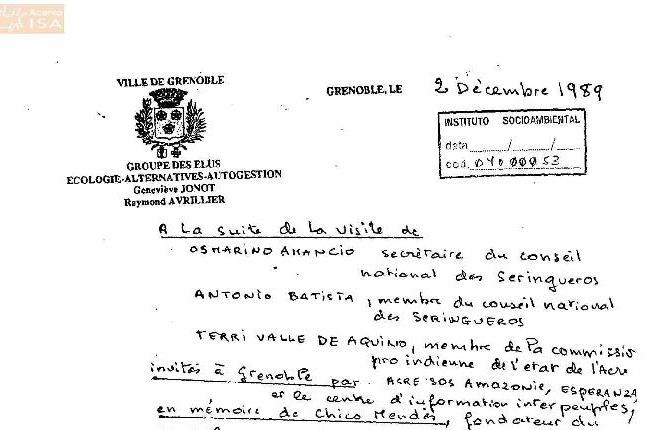 Acervo
ISA
VILLE DE GRENOBLE
GRENOBLE, LE 2 Décembre 1989
INSTITUTO SOCIOAMBIENTAL
data / /
cod. 0Y0 00053
GROUPE DES ELUS
ECOLOGIE-ALTERNATIVES-AUTOGESTION
Geneviève JONOT
Raymond AVRILLIER
A La suite de la visite de
OSMARINO AMANCIO secrétaire du conseil
national des Seringueros
ANTONIO BATISTA, membre du conseil national
des SERINGUEROS
TERRI VALLE DE AQUINO, membre de la commissio
pro indienne de l'etat de l'Acre
invités à Grenoble par ACRE SOS AMAZONIE, ESPERANZA
et le centre d'information interpeuples,
en mémoire de Chico Mendès, fondateur du